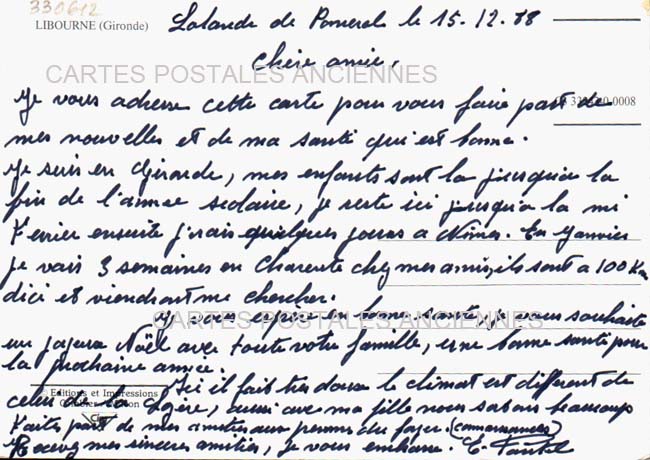 330612
LIBOURNE (Gironde)
Lalande de Pomerol le 15.12.88
Chère amie,
CARTES POSTALES ANCIENNES
Je vous adresse cette carte pour vous faire part de
mes nouvelles et de ma santé qui est bonne.
Je suis en Gironde, mes enfants sont la jusqu'a la
fin de l'année scolaire, je reste ici jusqu'a la mi
Février ensuite j'irais quelques jours a Nîmes. En Janvier
je vais 3 semaines en Charente chez mes amis, ils sont a 100 Km
dici et viendront me chercher.
Je vous espère en bonne santé, je vous souhaite
CARTES POSTALES ANCIENNES
un joyeux Noël avec toute votre famille, et une bonne santé pour
la prochaine année.
Ici il fait très doux le climat est différent de
celui de la Lozère, aussi avec ma fille nous sortons beaucoup
Editions et Impressions
Faites part de mes amitiés aux personnes du foyer. (connaissances)
Recevez mes sincères amitiés, je vous embrasse. E.